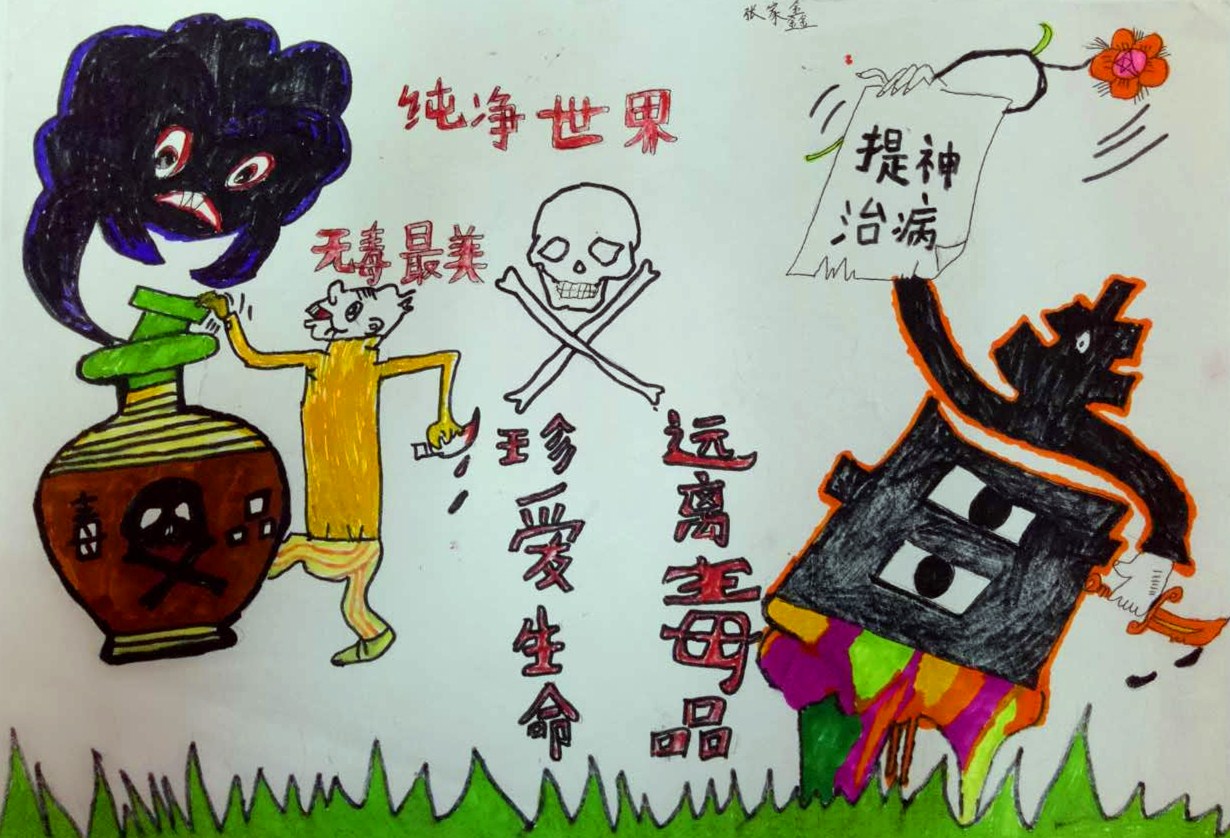 张家鑫
纯净世界
无毒最美
提神
治病
珍爱生命
远离毒品